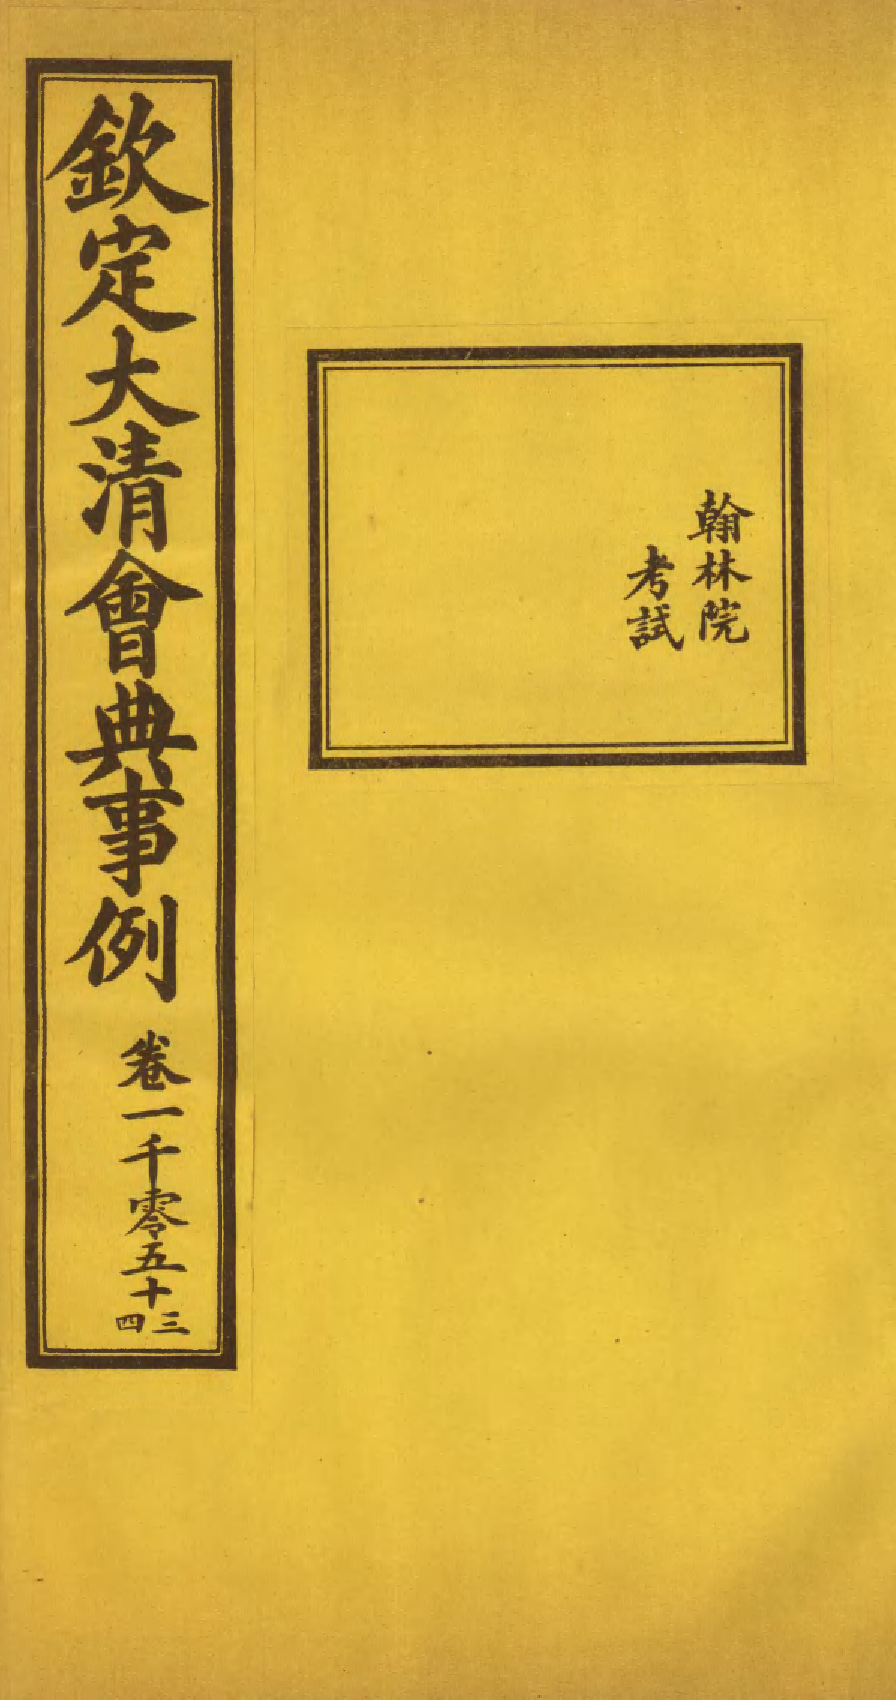 翰林院
考試
欽定大清會典事例 卷一千零五十三四